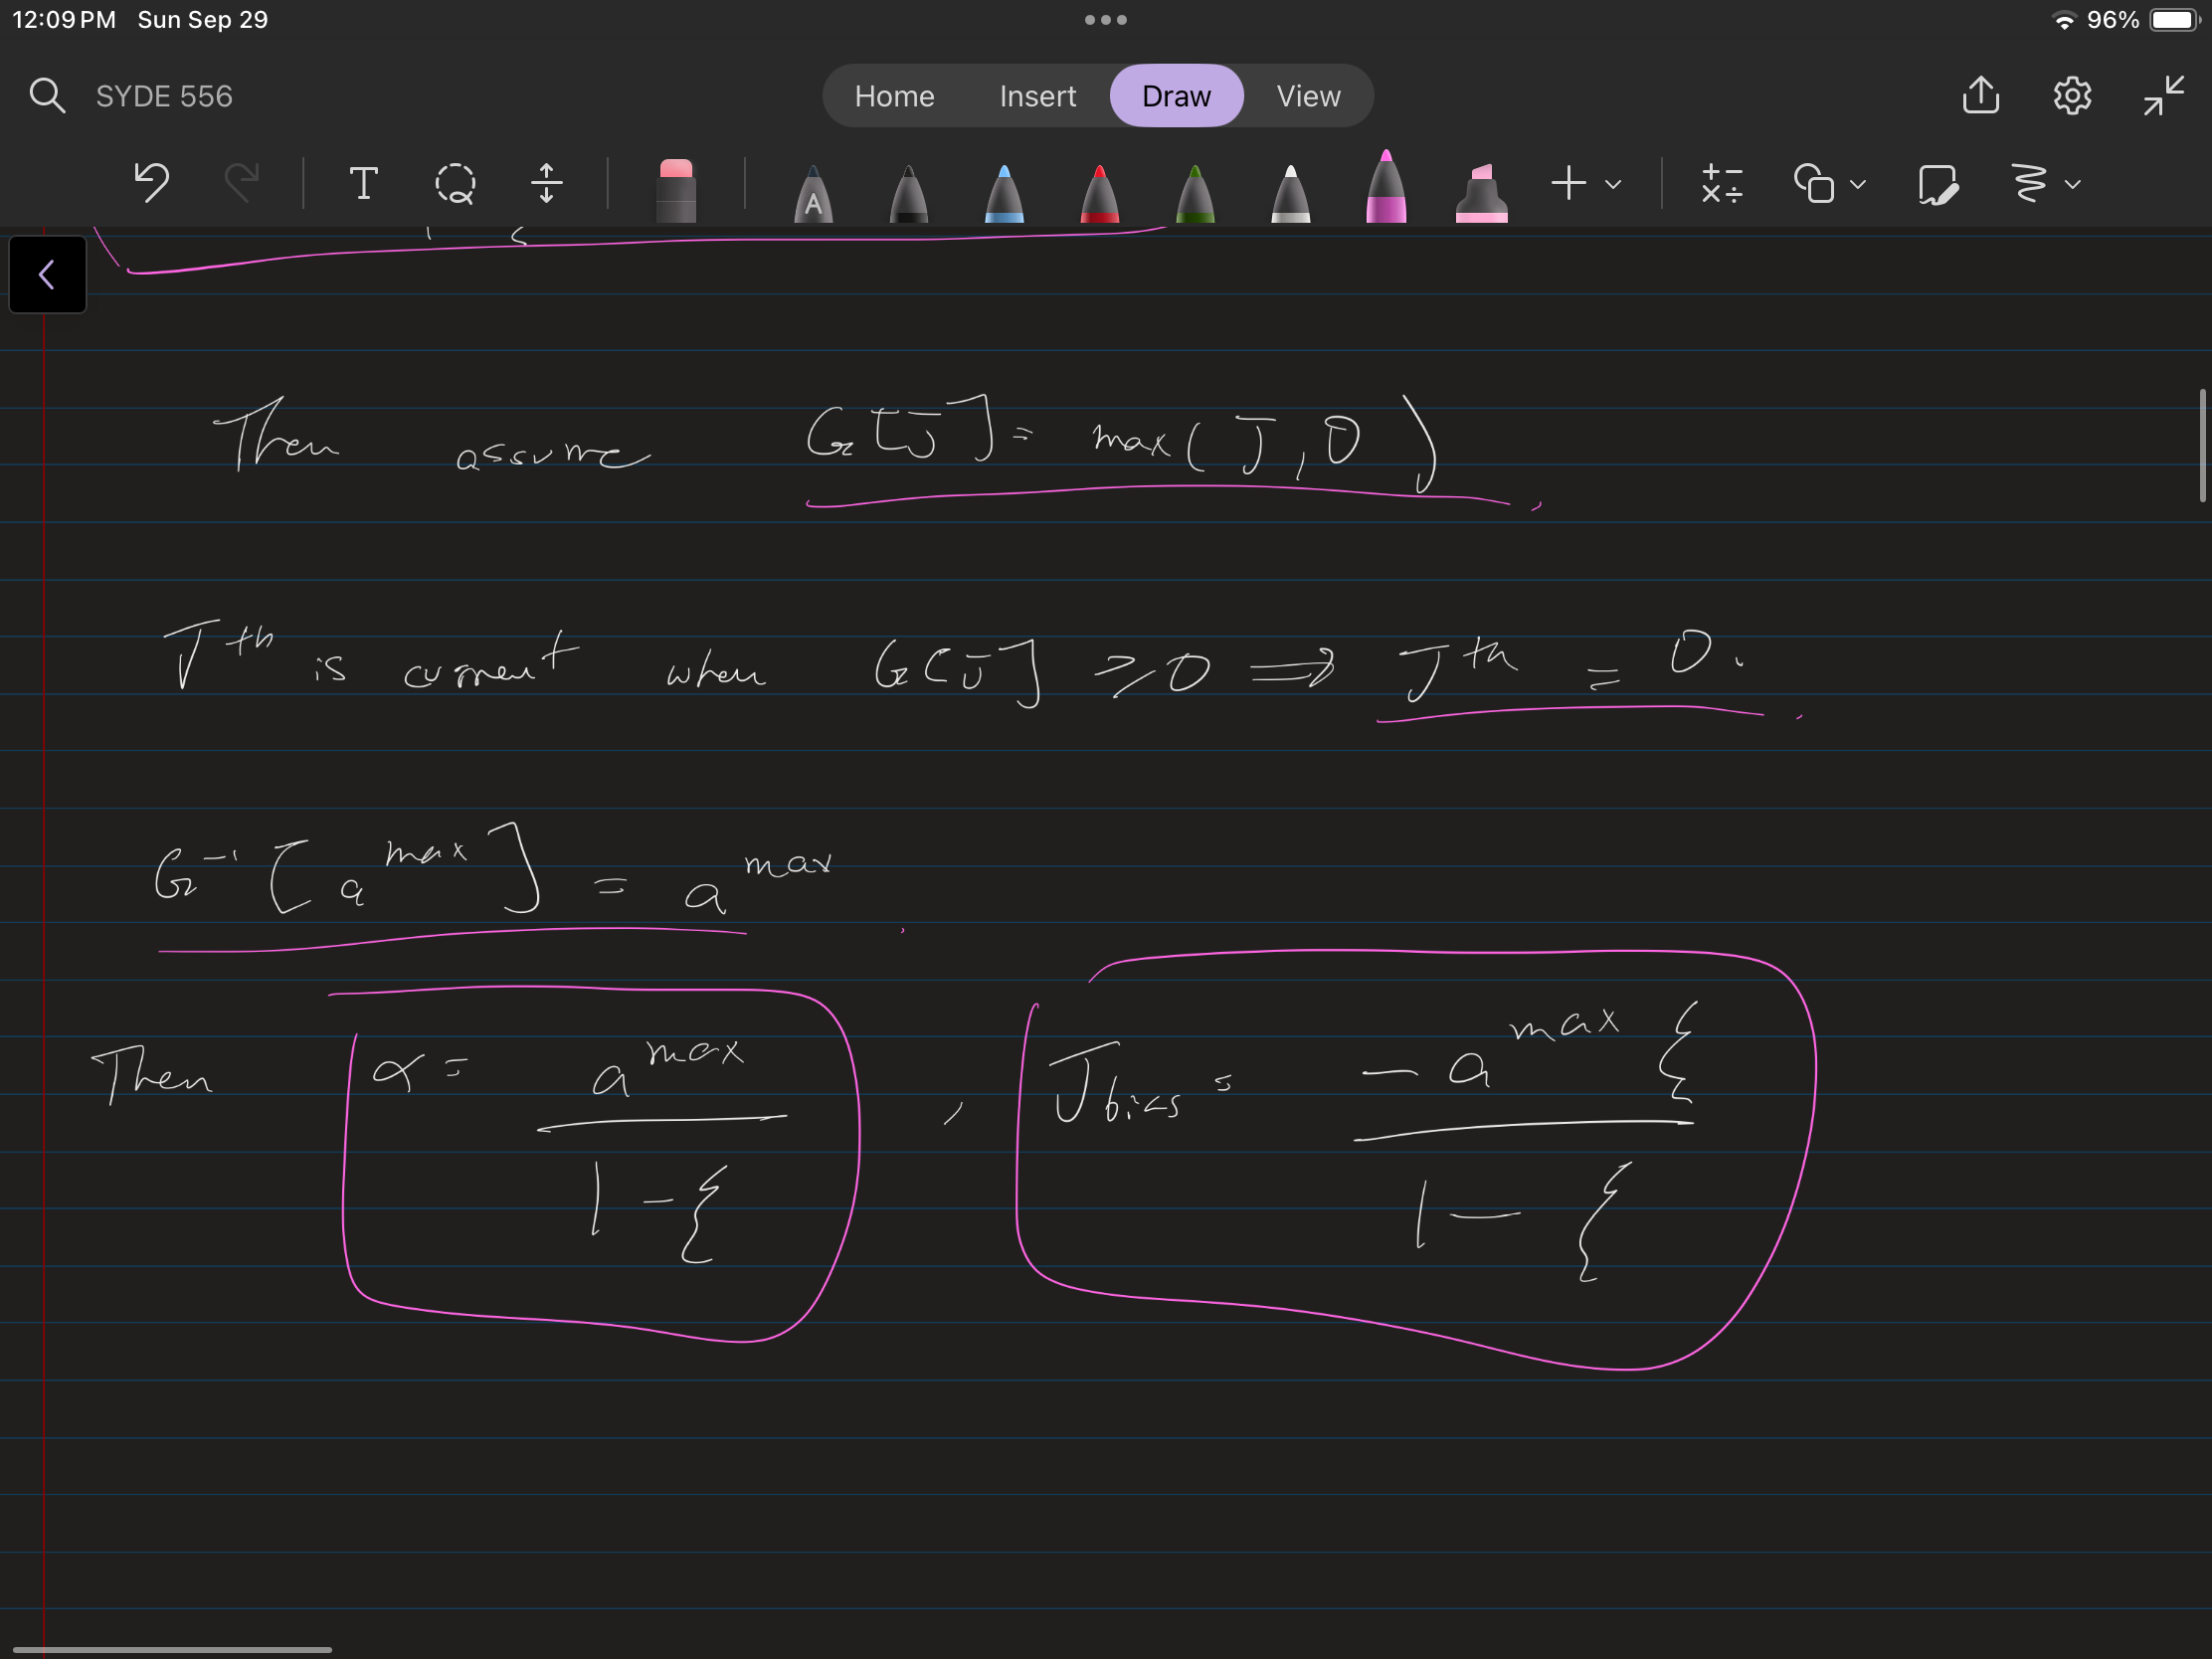 12:09 PM Sun Sep 29 96%
SYDE 556 Home Insert Draw View
T A
Then assume G[J] = max(J, 0)
J^th is current when G[J] ≥ 0 ⇒ J^th = 0.
G^-1 [a^max] = a^max
Then α = a^max / (1 - ξ) , J_bias = -a^max ξ / (1 - ξ)